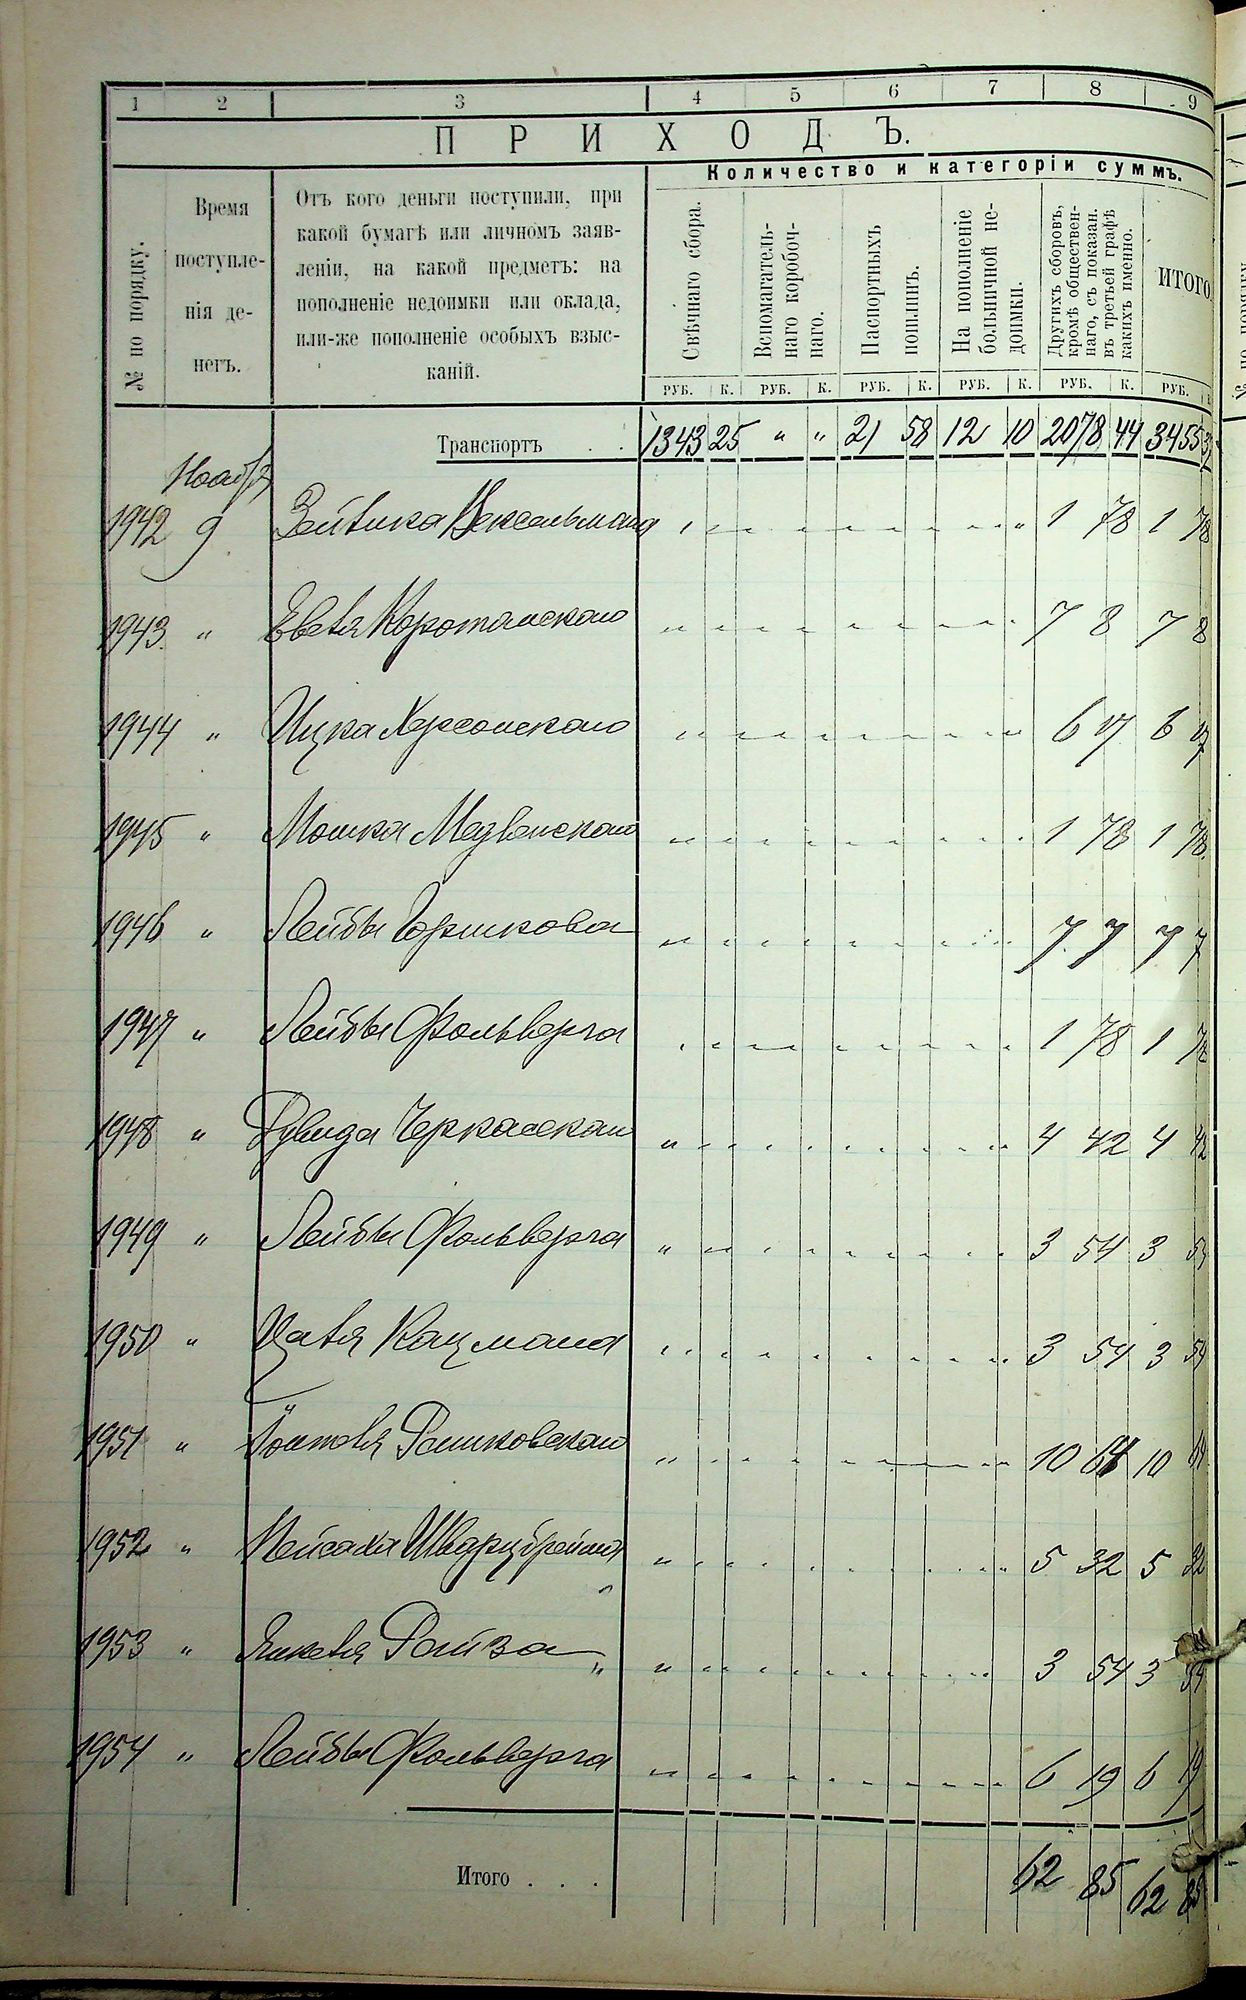 1 2 3 4 5 6 7 8 9
ПРИХОДЪ.
Количество и категоріи суммъ.
№ по порядку.
Время
поступле-
нія де-
негъ.
Отъ кого деньги поступили, при
какой бумагѣ или личномъ заяв-
леніи, на какой предметъ: на
пополненіе недоимки или оклада,
или-же пополненіе особыхъ взыс-
каній.
Свѣчнаго сбора.
Вспомагатель-
наго коробоч-
наго.
Паспортныхъ
пошлинъ.
На пополненіе
больничной не-
доимки.
Другихъ сборовъ,
кромѣ обществен-
наго, съ показан.
въ третьей графѣ
какихъ именно.
ИТОГО
РУБ. К. РУБ. К. РУБ. К. РУБ. К. РУБ. К. РУБ.
Транспортъ . . 1343 25 " " 21 58 12 10 2078 44 3455
Ноабр
1942 9 1 78 1 78
1943 " 7 8 7 8
1944 " Ицка Херсонскаго 6 17 6 17
1945 " Мошка 1 78 1 78
1946 " Лейбы Горшкова 7 7 7 7
1947 " Лейбы Фольварга 1 78 1 78
1948 " Черкасскаго 4 42 4 42
1949 " Лейбы Фольварга 3 54 3 54
1950 " Кацмана 3 54 3 54
1951 " Рашковскаго 10 64 10 64
1952 " Пейсаха 5 32 5 32
1953 " Янкеля Райза 3 54 3 54
1954 " Лейбы Фольварга 6 19 6 19
Итого . . . 62 85 62 85